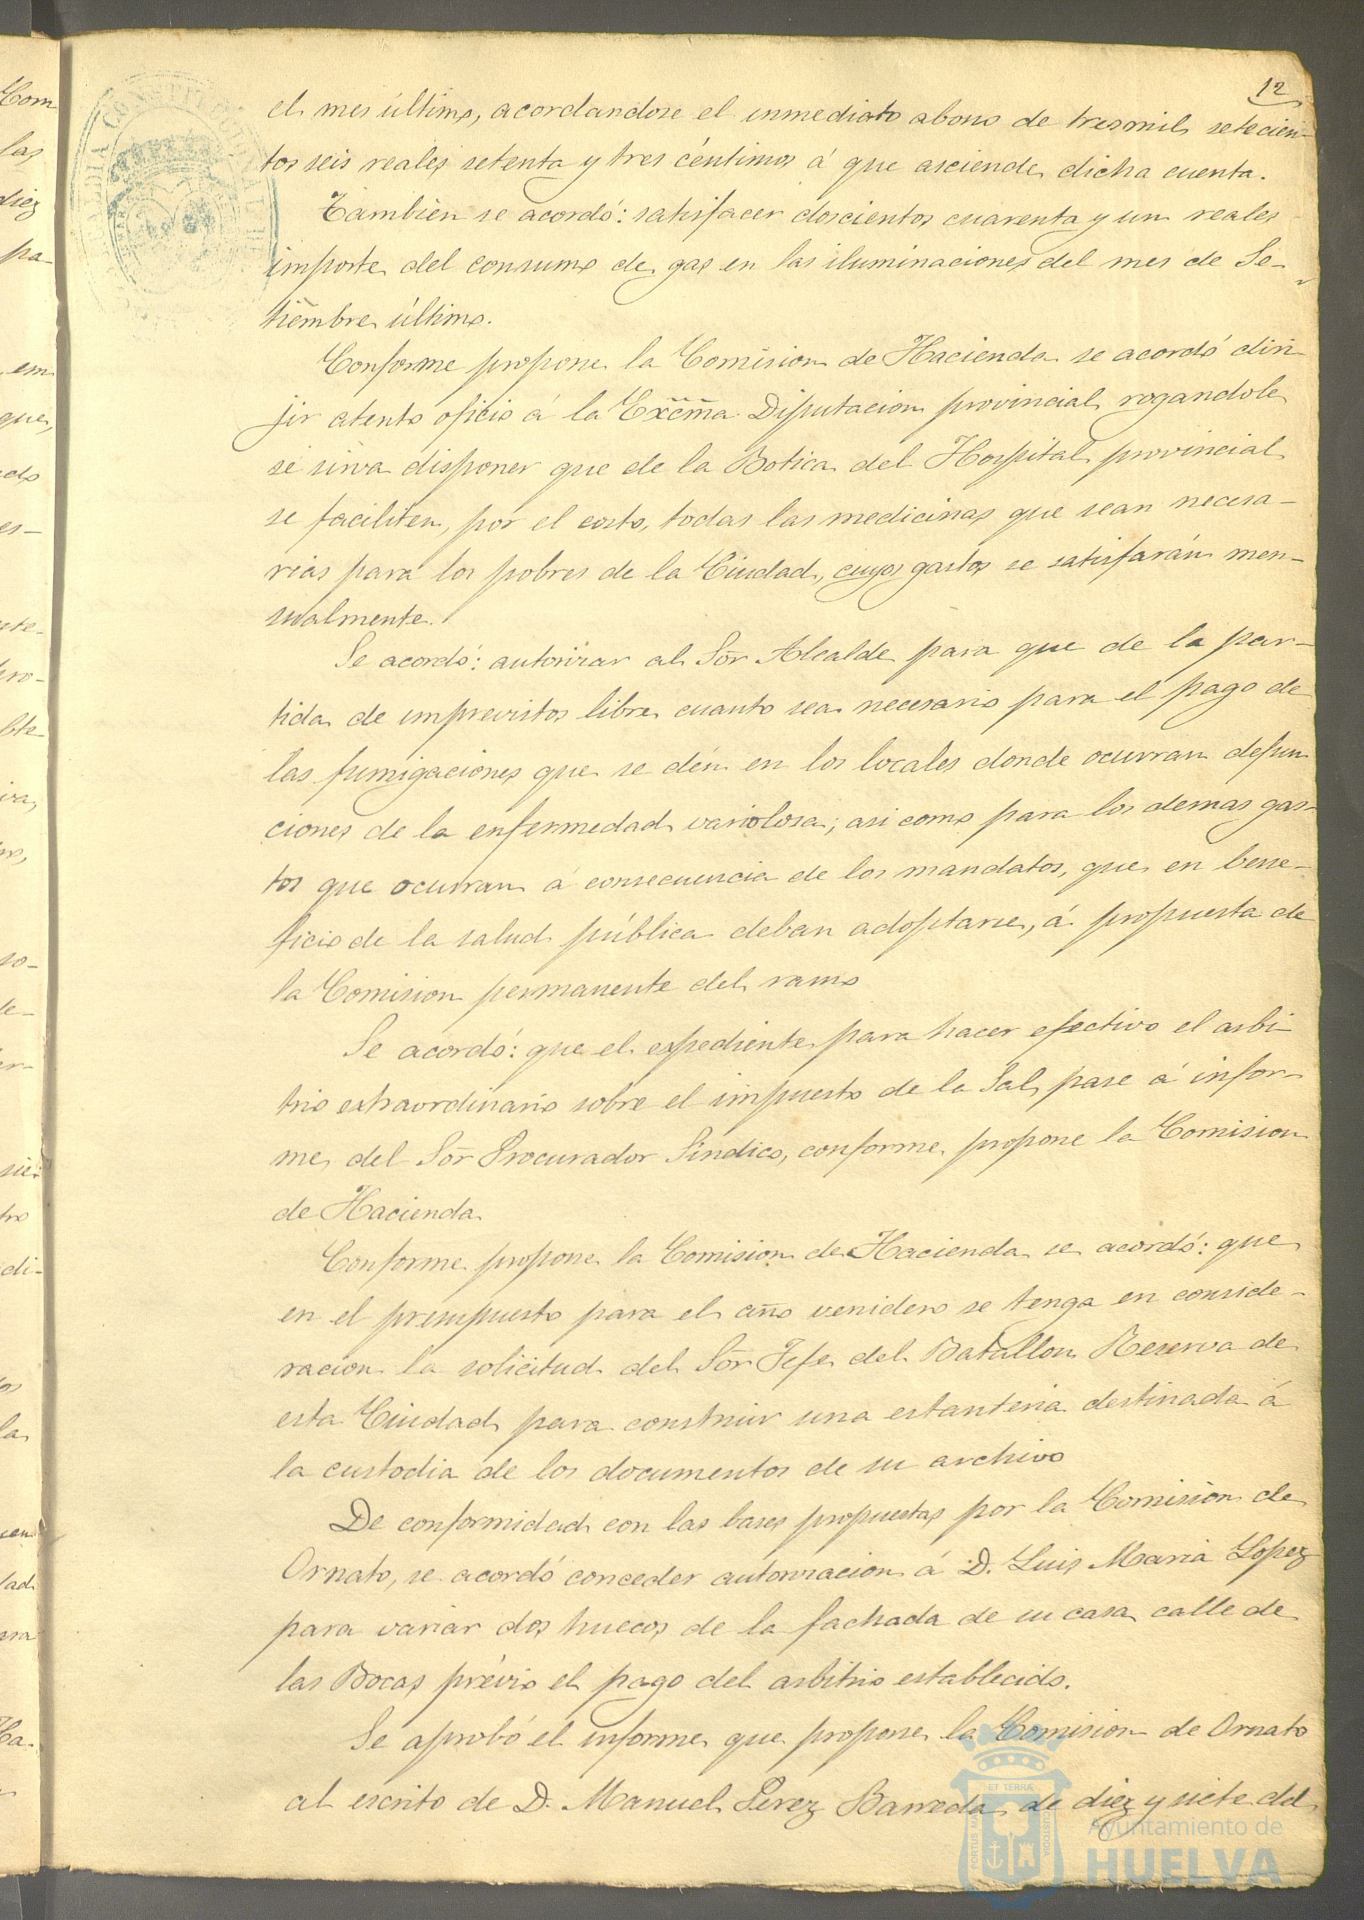 12
el mes último, acordandose el inmediato abono de tresmil setecien-
tos seis reales setenta y tres céntimos á que asciende dicha cuenta.
Tambien se acordó: satisfacer doscientos cuarenta y un reales
importe del consumo de gas en las iluminaciones del mes de Se-
tiembre último.
Conforme propone la Comision de Hacienda se acordó diri-
jir atento oficio á la Excma Diputacion provincial rogandole
se sirva disponer que de la Botica del Hospital provincial
se faciliten, por el costo, todas las medicinas que sean necesa-
rias para los pobres de la Ciudad, cuyos gastos se satisfarán men-
sualmente.
Se acordó: autorizar al Sor Alcalde para que de la par-
tida de imprevistos libre cuanto sea necesario para el pago de
las fumigaciones que se dén en los locales donde ocurran defun
ciones de la enfermedad variolosa; asi como para los demas gas-
tos que ocurran á consecuencia de los mandatos, que en bene-
ficio de la salud pública deban adoptarse, á propuesta de
la Comision permanente del ramo
Se acordó: que el expediente para hacer efectivo el arbi-
trio extraordinario sobre el impuesto de la Sal, pase á infor-
me del Sor Procurador Sindico, conforme propone la Comision
de Hacienda
Conforme propone la Comision de Hacienda se acordó: que
en el presupuesto para el año venidero se tenga en conside-
racion la solicitud del Sor Jefe del Batallon Reserva de
esta Ciudad para construir una estanteria destinada á
la custodia de los documentos de su archivo
De conformidad con las bases propuestas por la Comision de
Ornato, se acordó conceder autorizacion á D. Luis Maria Lopez
para variar dos huecos de la fachada de su casa calle de
las Bocas prévio el pago del arbitrio establecido.
Se aprobó el informe que propone la Comision de Ornato
al escrito de D. Manuel Perez Barreda de diez y siete del
Ayuntamiento de
HUELVA